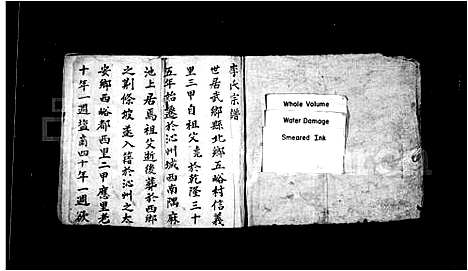 李氏宗譜
世居武鄉縣北鄉五峪村信義
里三甲自祖父堯於乾隆三十
五年抬遷於沁州城西南隅麻
池上居焉祖父逝後葬於西鄉
之荆條坡遂入籍於沁州之太
安鄉西峪都西里二甲應里老
十年一週盐商四十年一週欲
Whole Volume
Water Damage
Smeared Ink